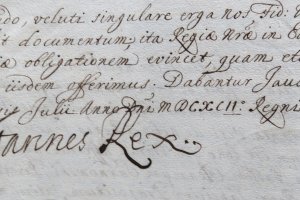 do, veluti singulare erga nos Fid:
it documentum, ita Regiæ Nræ in
æ obligationem evincet, quam
iisdem offerimus. Dabantur
Julii Anno Dni MDCXCII: Regni
annes Rex.